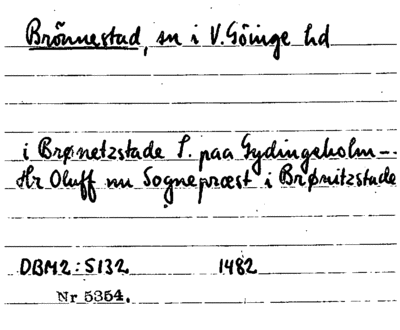 Brönnestad, sn i V. Göinge hd
i Brønetzstade S. paa Gydingeholm --
Hr Oluff nu Sognepræst i Brønitzstade
DBM2:S132 1482
Nr 5354.